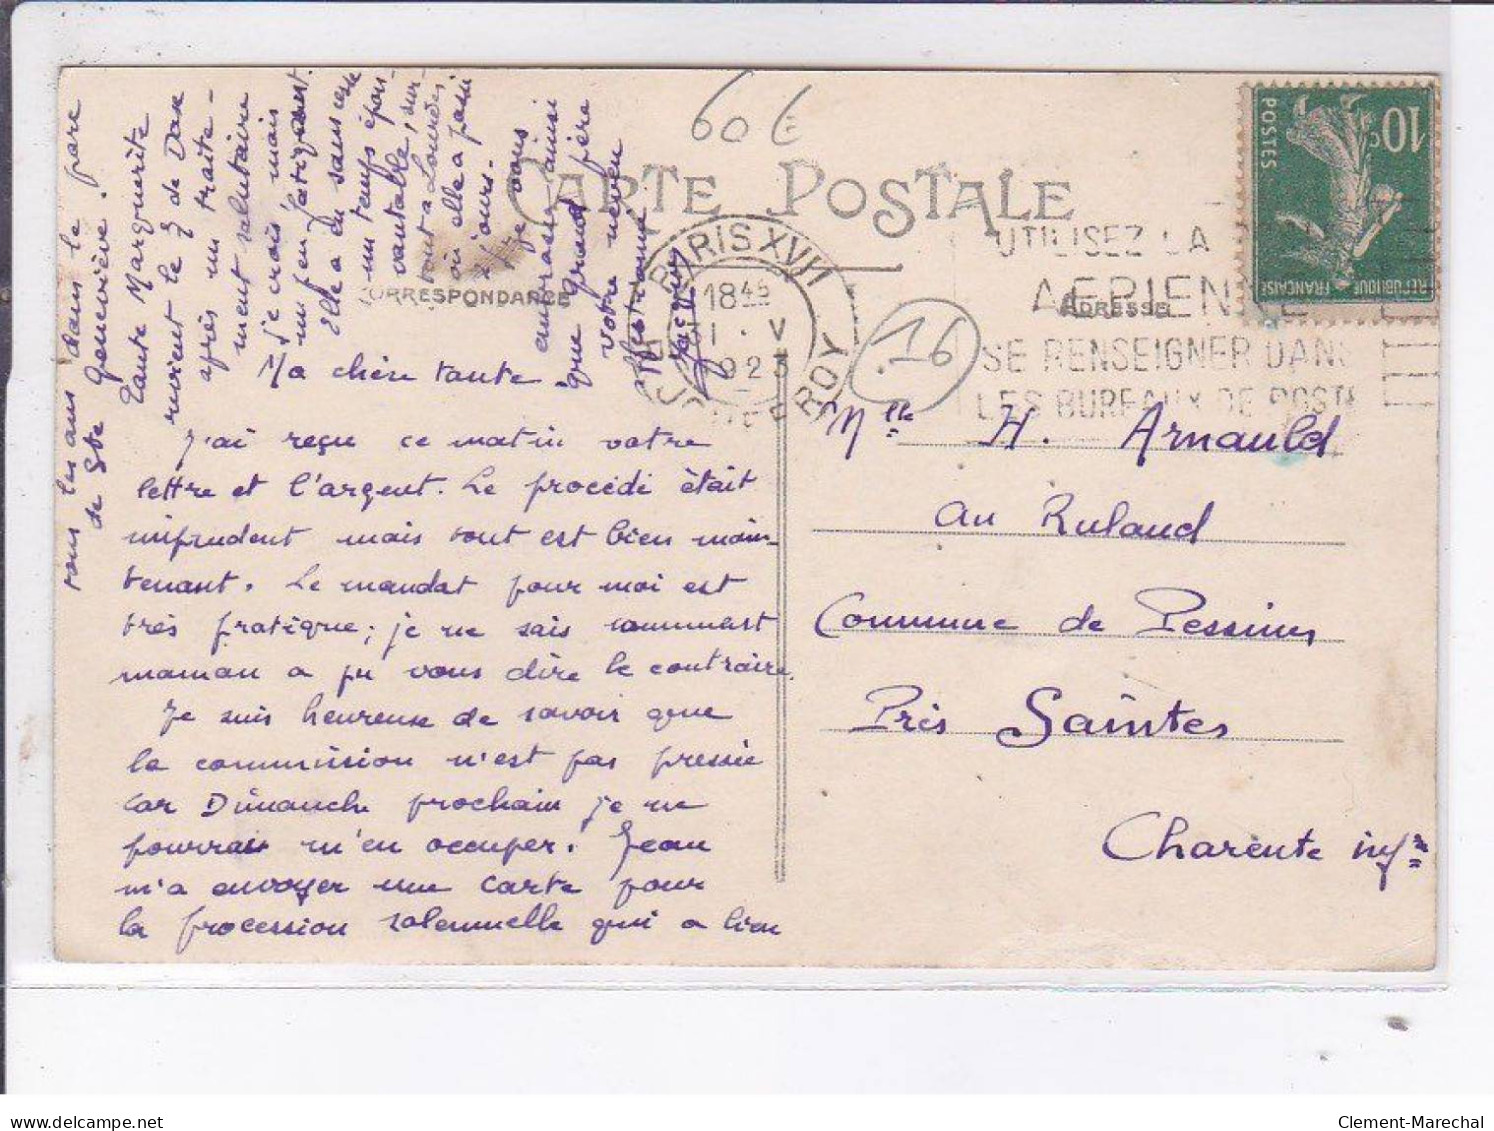 60 €
CARTE POSTALE
CORRESPONDANCE
ADRESSE
PARIS XVII
18 45
1 · V
1923
UTILISEZ LA
AERIENNE
SE RENSEIGNER DANS
LES BUREAUX DE POSTE
10 c
POSTES
REPUBLIQUE FRANÇAISE
16
Ma chère tante.
J'ai reçu ce matin votre
lettre et l'argent. Le procédé était
imprudent mais tout est bien main-
tenant. Le mandat pour moi est
très pratique; je ne sais comment
maman a pu vous dire le contraire.
Je suis heureuse de savoir que
la commission n'est pas pressée
car Dimanche prochain je ne
pourrai m'en occuper. Jean
m'a envoyer une carte pour
la procession solennelle qui a lieu
tous les ans dans le parc
de Ste Geneviève.
Tante Marguerite
revient le 7 de Dax
après un traite-
ment salutaire
je crois mais
un peu fatiguant.
Elle a eu sans cesse
un temps épou-
vantable, sur-
tout a Lourdes
où elle a passé
2 jours.
Je vous
embrasse ainsi
que Grand père
votre neveu
affectionné
Jacques
Mlle H. Arnauld
au Rulaud
Commune de Pessines
Près Saintes
Charente infre
Clement-Marechal
delcampe.net